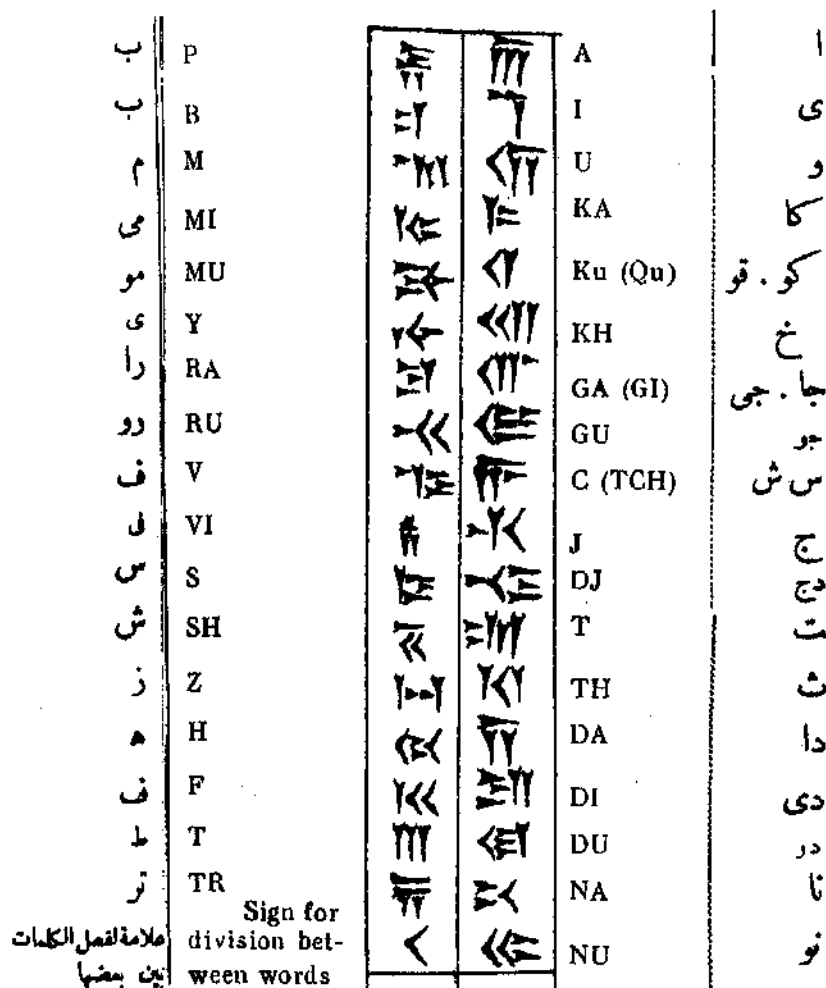 ب P 𐎱 𐎠 A ا
ب B 𐎲 𐎡 I ى
م M 𐎶 𐎢 U و
مى MI 𐎷 𐎣 KA كا
مو MU 𐎸 𐎤 Ku (Qu) كو . قو
ى Y 𐎹 𐎧 KH خ
را RA 𐎼 𐎥 GA (GI) جا . جى
رو RU 𐎽 𐎦 GU جو
ف V 𐎺 𐎨 C (TCH) س ش
فى VI 𐎻 𐎩 J ج
س S 𐎿 𐎪 DJ دج
ش SH 𐏁 𐎫 T ت
ز Z 𐏀 𐎰 TH ث
ه H 𐏃 𐎭 DA دا
ف F 𐎳 𐎮 DI دى
ط T 𐎬 𐎯 DU در
تر TR 𐏂 𐎴 NA نا
Sign for
علامة لفصل الكلمات division bet- 𐏐 𐎵 NU نو
بين بعضها ween words